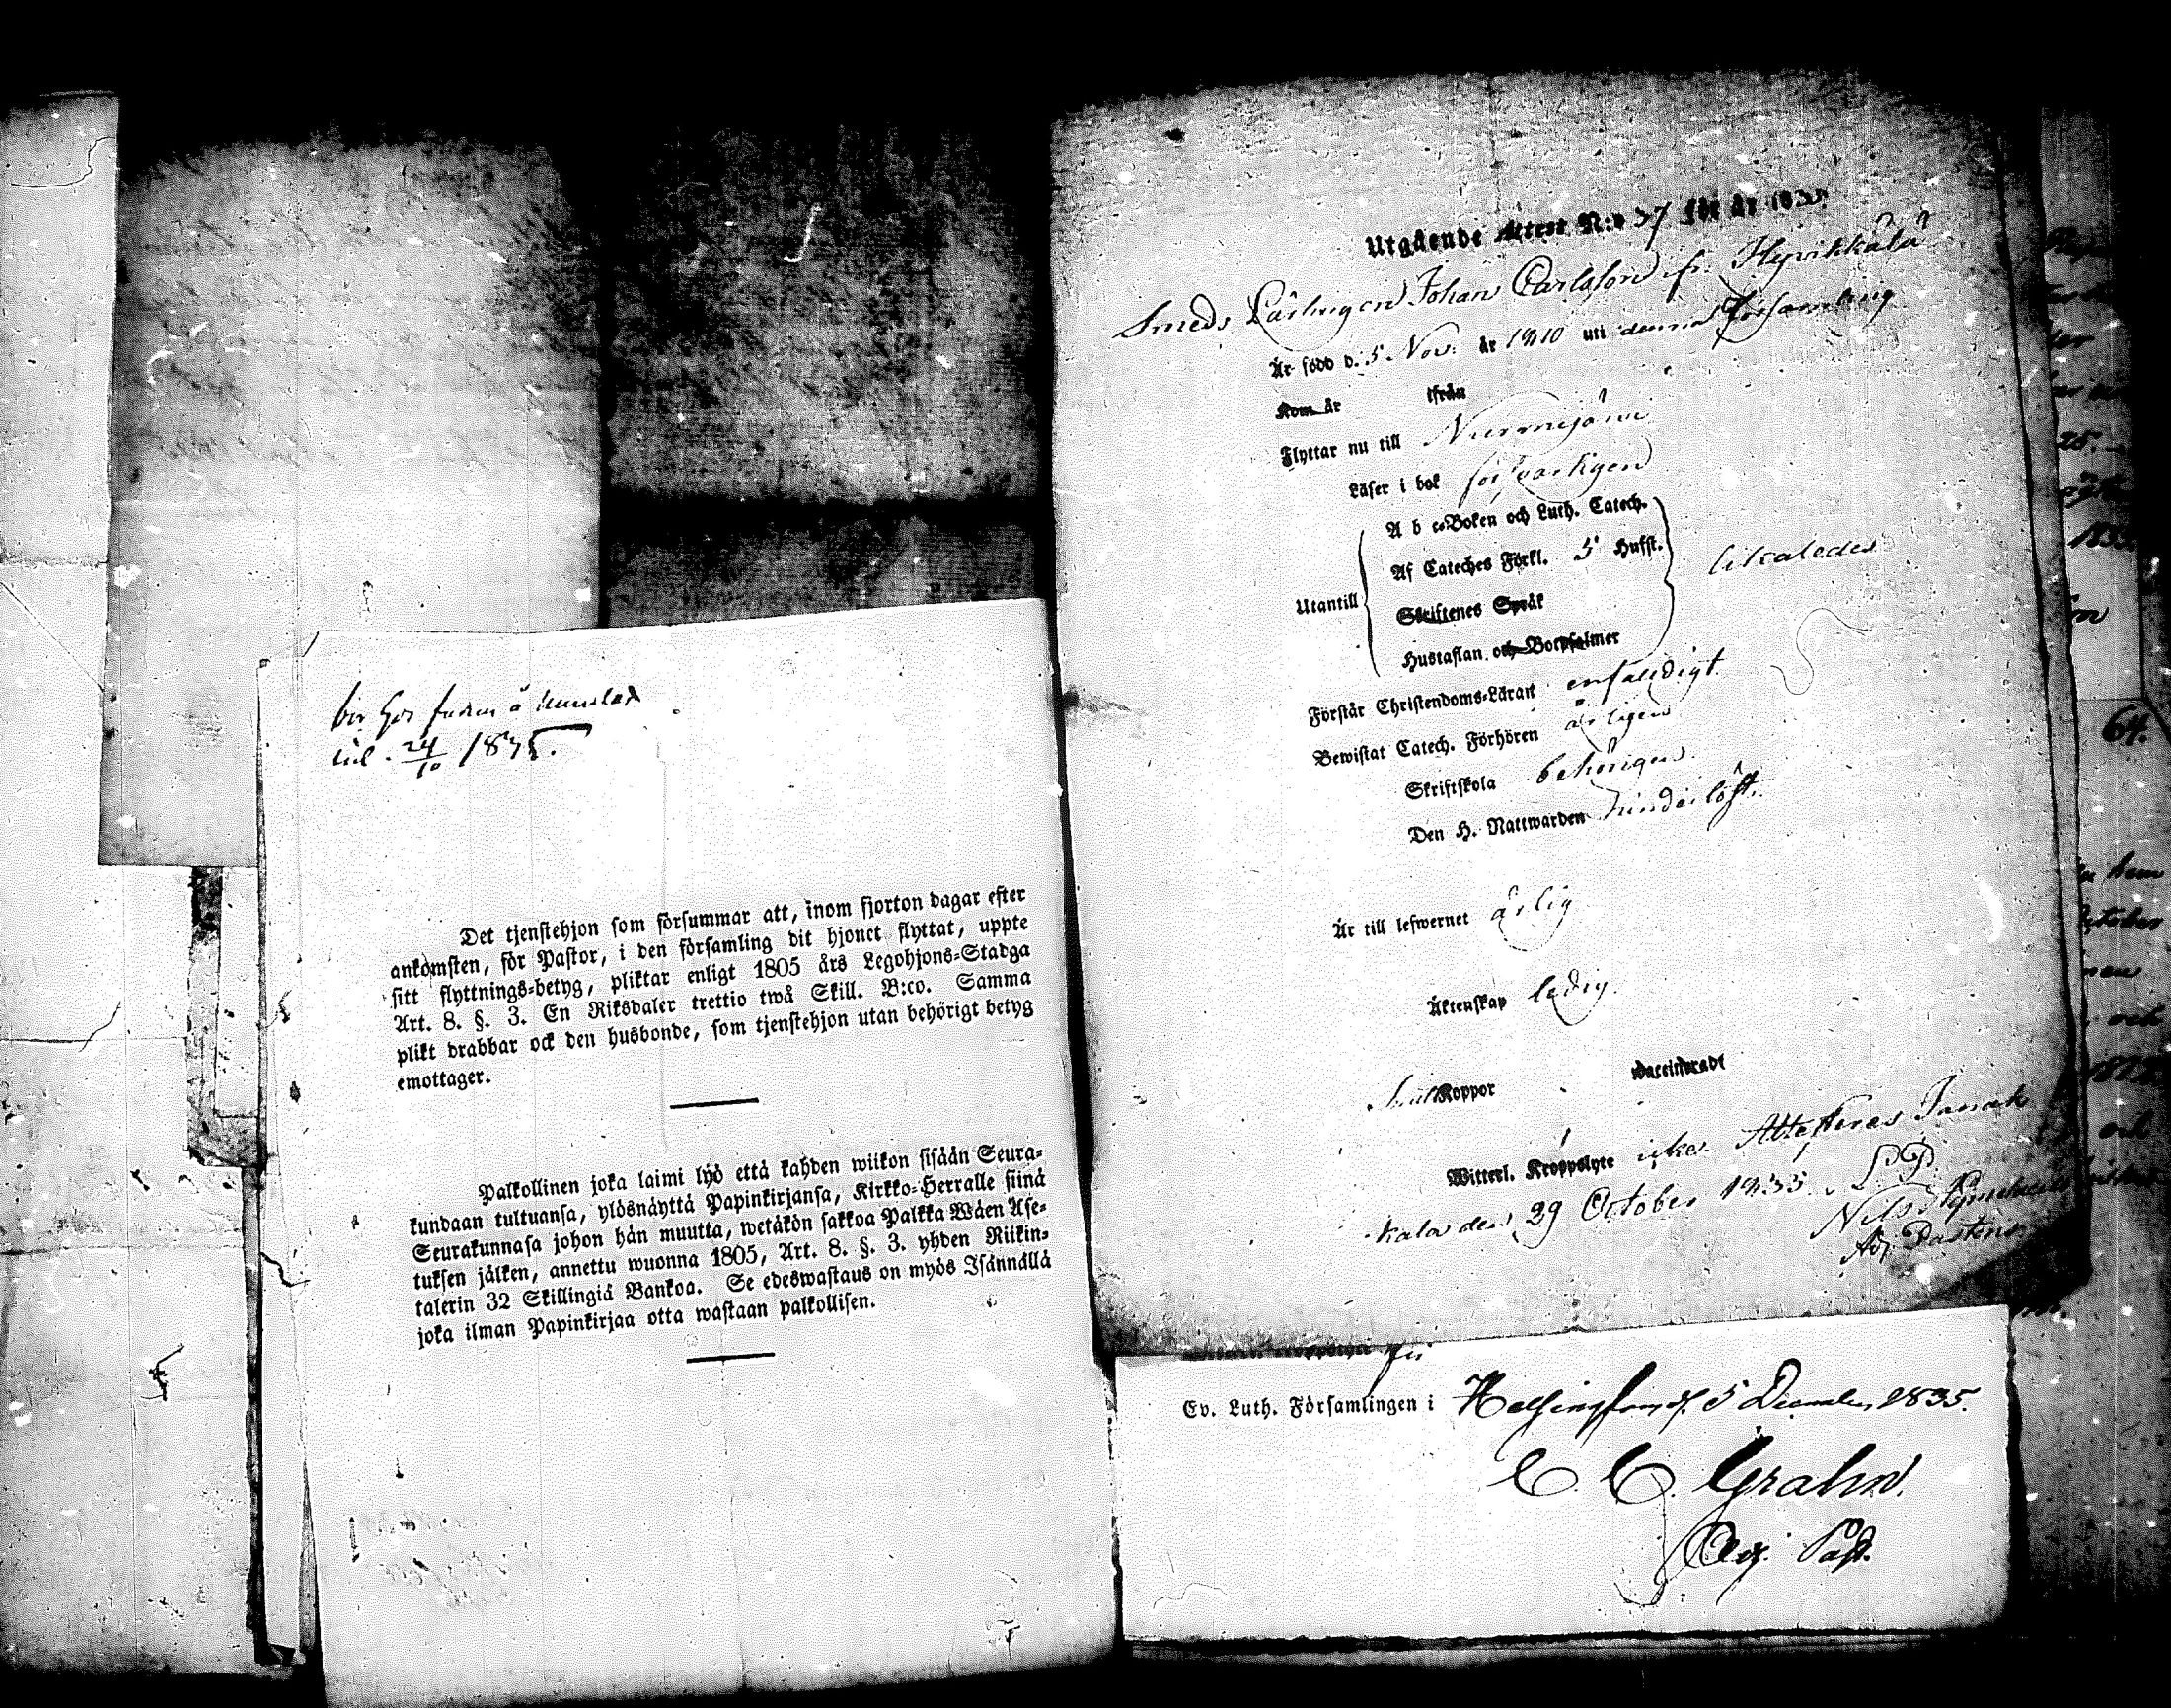 bor hos
till 24/10 1835.
Det tjenstehjon som försummar att, inom fjorton dagar efter
ankomsten, för Pastor, i den församling dit hjonet flyttat, uppte
sitt flyttnings-betyg, pliktar enligt 1805 års Legohjons-Stadga
Art. 8. §. 3. En Riksdaler trettio twå Skill. B:co. Samma
plikt drabbar ock den husbonde, som tjenstehjon utan behörigt betyg
emottager.
Palkollinen joka laimi lyö että kahden wiikon sisään Seura-
kundaan tultuansa, ylösnäyttä Papinkirjansa, Kirkko-Herralle siinä
Seurakunnasa johon hän muutta, wetäkön sakkoa Palkka Wäen Ase-
tuksen jälken, annettu wuonna 1805, Art. 8. §. 3. yhden Riikin-
talerin 32 Skillingiä Bankoa. Se edeswastaus on myös Isännällä
joka ilman Papinkirjaa otta wastaan palkollisen.
Utgående Attest N:o 37 för år 1835
Smeds Lärlingen Johan Carlsson fr. Hyvikkälä
Är född d. 5 Nov: år 1810 uti denna församling
Kom år ifrån
Flyttar nu till Nurmijärvi
Läser i bok försvarligen
A b c-Boken och Luth. Catech.
Af Cateches Förkl. 5 Hufst.
likaledes
Utantill
Skriftenes Språk
Hustaflan och Botpsalmer
Förstår Christendoms-Lärart enfaldigt.
Bewistat Catech. Förhören årligen
Skriftskola behörigen.
Den H. Nattwarden hinderlöst.
Är till lefwernet ärlig
Äktenskap ledig.
Koppor
Witterl. Kroppslyte icke. Attesteras Janak
kala den 29 October 1835.
Nils
Adj. Pastens
Ev. Luth. Församlingen i Helsingfors d. 5 December 1835.
C. C. Grahn.
Adj. Past.
64.